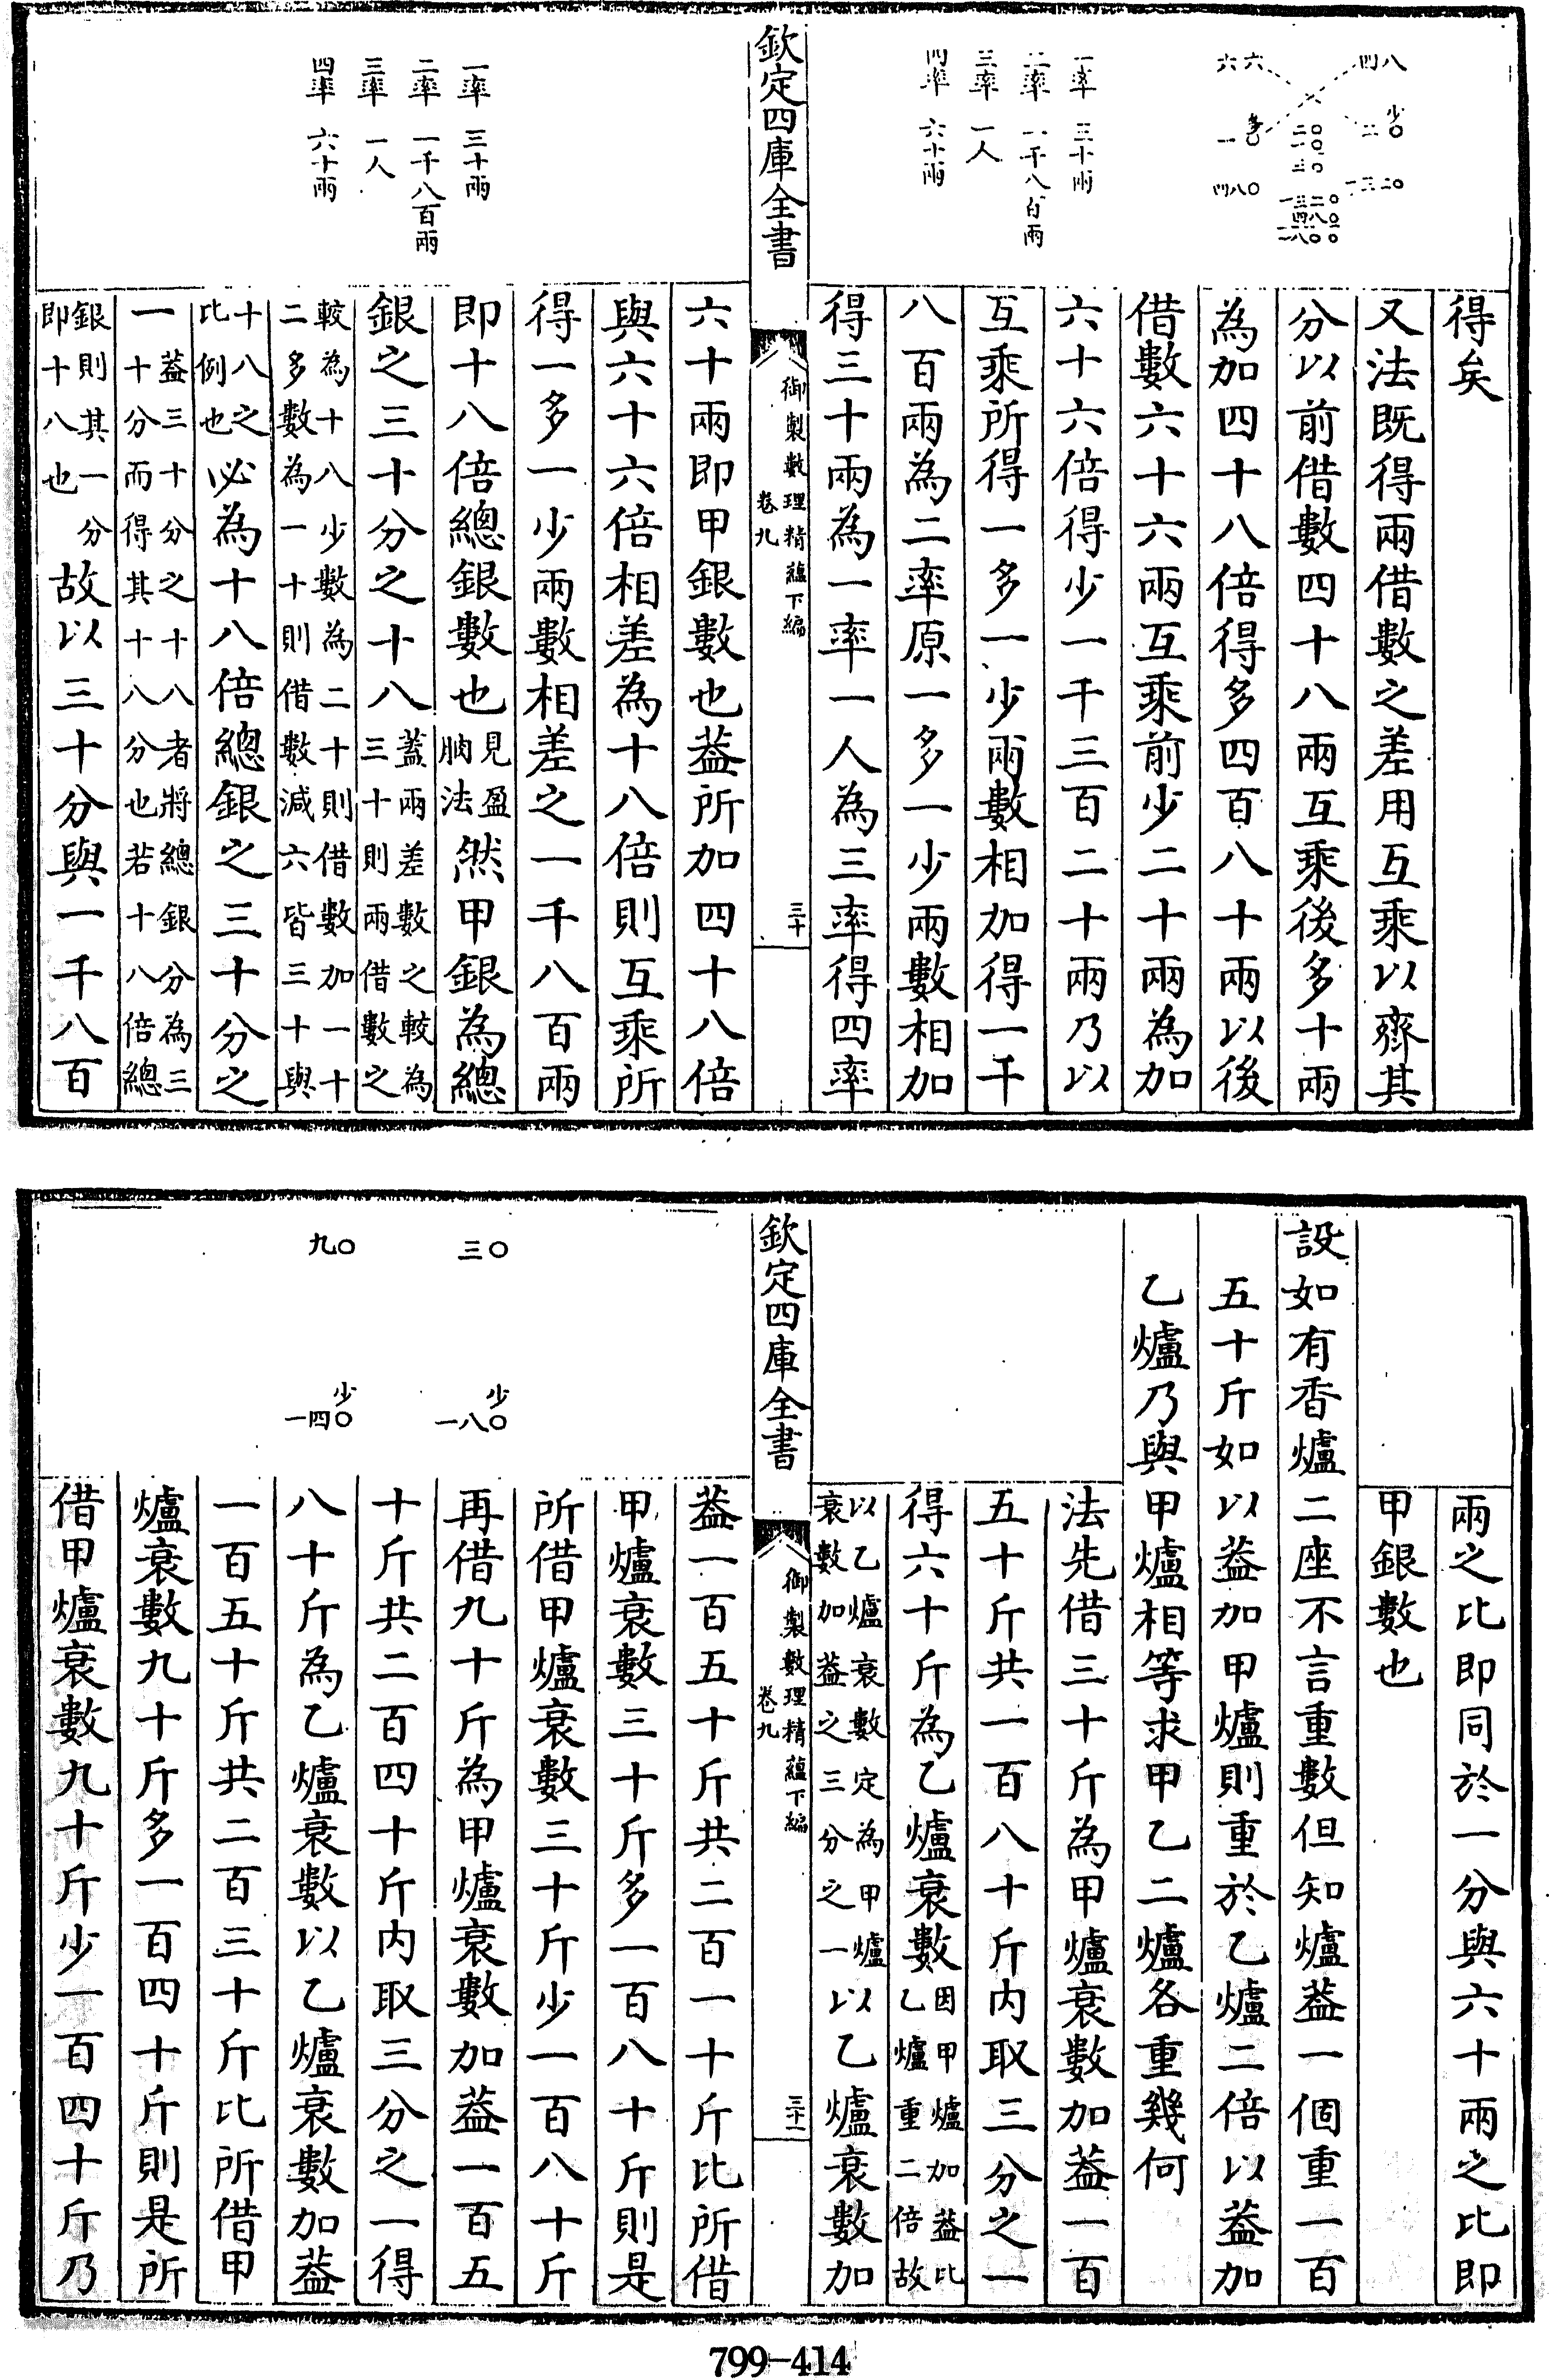 四八
六六
少
二〇
多
一〇
二〇
一〇
三〇
一三二〇
四八〇
一三二〇
四八〇
一八〇〇
一率 三十兩
二率 一千八百兩
三率 一人
四率 六十兩
得矣
又法既得兩借數之差用互乘以齊其
分以前借數四十八兩互乘後多十兩
為加四十八倍得多四百八十兩以後
借數六十六兩互乘前少二十兩為加
六十六倍得少一千三百二十兩乃以
互乘所得一多一少兩數相加得一千
八百兩為二率原一多一少兩數相加
得三十兩為一率一人為三率得四率
欽定四庫全書
御製數理精蘊下編
卷九
三十
一率 三十兩
二率 一千八百兩
三率 一人
四率 六十兩
六十兩即甲銀數也葢所加四十八倍
與六十六倍相差為十八倍則互乘所
得一多一少兩數相差之一千八百兩
即十八倍總銀數也見盈朒法然甲銀為總
銀之三十分之十八蓋兩差數之較為三十則兩借數之
較為十八少數為二十則借數加一十二多數為一十則借數減六皆三十與
十八之比例也必為十八倍總銀之三十分之
一葢三十分之十八者將總銀分為三十分而得其十八分也若十八倍總
銀則其一分即十八也故以三十分與一千八百
兩之比即同於一分與六十兩之比即
甲銀數也
設如有香爐二座不言重數但知爐葢一個重一百
五十斤如以葢加甲爐則重於乙爐二倍以葢加
乙爐乃與甲爐相等求甲乙二爐各重幾何
法先借三十斤為甲爐衰數加葢一百
五十斤共一百八十斤内取三分之一
得六十斤為乙爐衰數因甲爐加葢比乙爐重二倍故
以乙爐衰數定為甲爐衰數加葢之三分之一以乙爐衰數加
欽定四庫全書
御製數理精蘊下編
卷九
三十一
三〇
少
一八〇
九〇
少
一四〇
葢一百五十斤共二百一十斤比所借
甲爐衰數三十斤多一百八十斤則是
所借甲爐衰數三十斤少一百八十斤
再借九十斤為甲爐衰數加葢一百五
十斤共二百四十斤内取三分之一得
八十斤為乙爐衰數以乙爐衰數加葢
一百五十斤共二百三十斤比所借甲
爐衰數九十斤多一百四十斤則是所
借甲爐衰數九十斤少一百四十斤乃
799-414